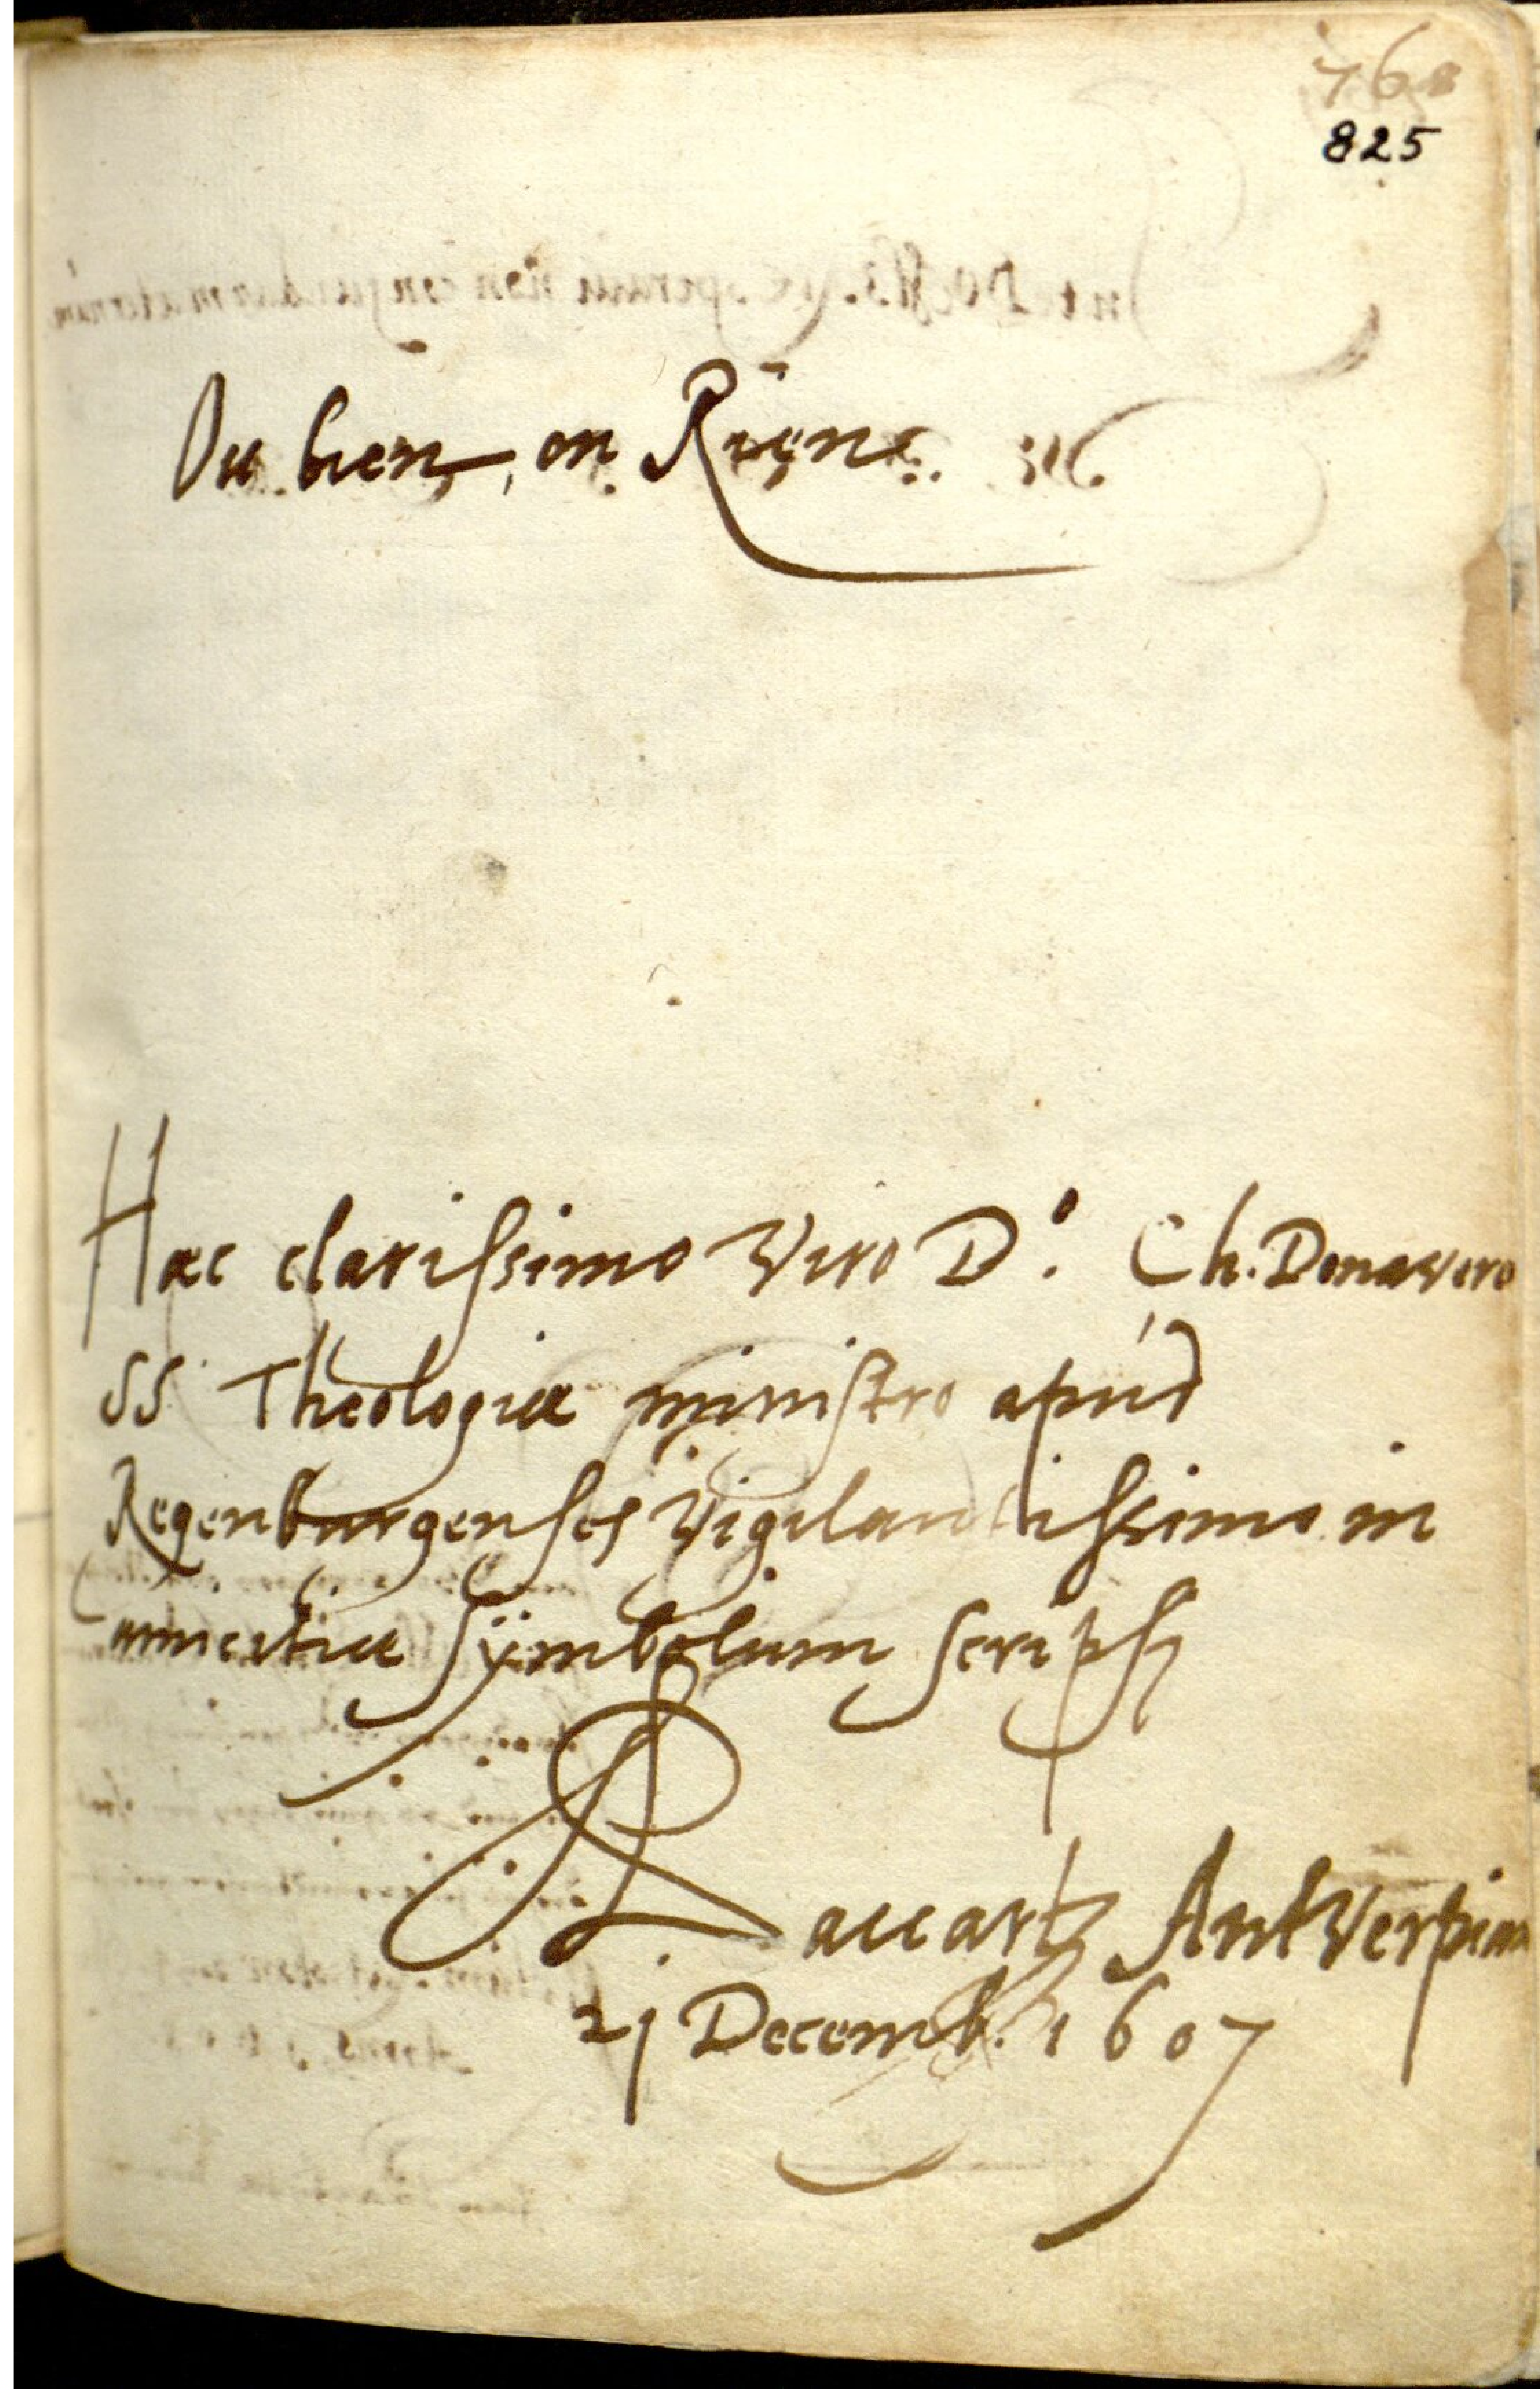 768
825
Ou bien, ou Riens.
Haec clarissimo Viro D°. Ch. Donavero
SS Theologiae ministro apúd
Regenburgenses Vigilantissimo in
amicitiae sÿmbolum scripsi
Antverpian
21 Decemb. 1607